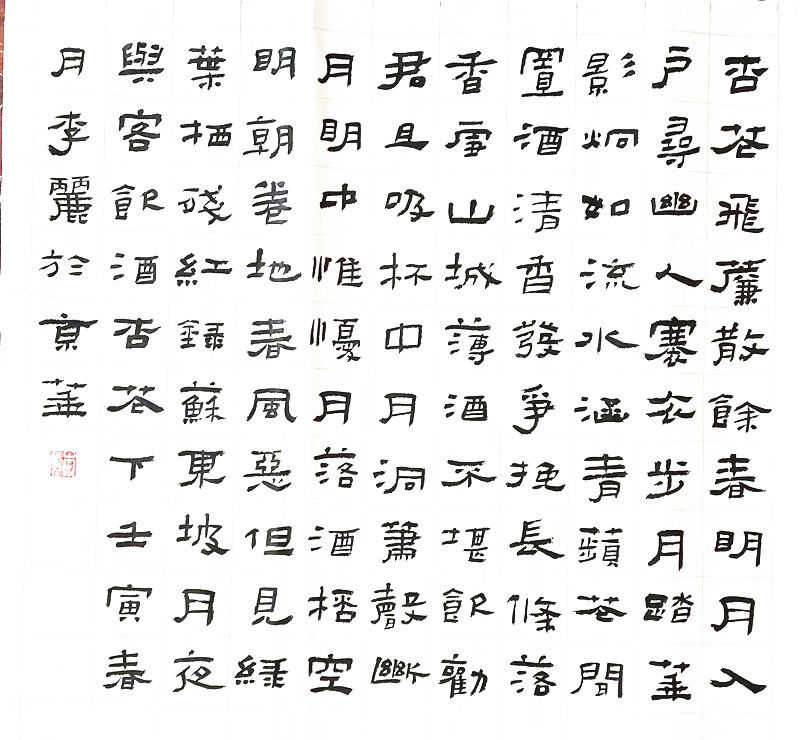 杏花飛簾散餘春明月入
戶尋幽人褰衣步月踏華
影炯如流水涵青蘋花間
置酒清香發爭挽長條落
香雪山城薄酒不堪飲勸
君且吸杯中月洞簫聲斷
月明中惟懮月落酒桮空
明朝卷地春風惡但見綠
葉栖殘紅錄蘇東坡月夜
與客飲酒杏花下壬寅春
月李麗於京華